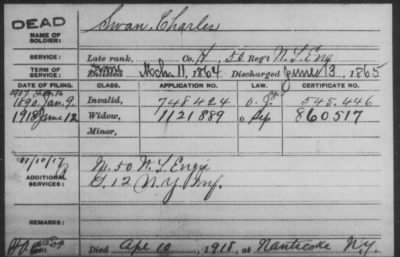 DEAD
NAME OF SOLDIER:
Swan, Charles
SERVICE:
Late rank, Co. H, 50 Reg't N.Y. Eng
TERM OF SERVICE:
Enlisted Mch. 11, 1864 Discharged June 13, 1865
DATE OF FILING. CLASS. APPLICATION NO. LAW. CERTIFICATE NO.
1890 Jan. 9 Invalid, 748424 545.446
1918 June 12 Widow, 1121889 " Sep 860517
Minor,
11/10/17
ADDITIONAL SERVICES:
M. 50 N.Y. Engrs
G. 12 N.Y. Inf.
REMARKS:
Died Apr 10, 1918, at Nanticoke N.Y.